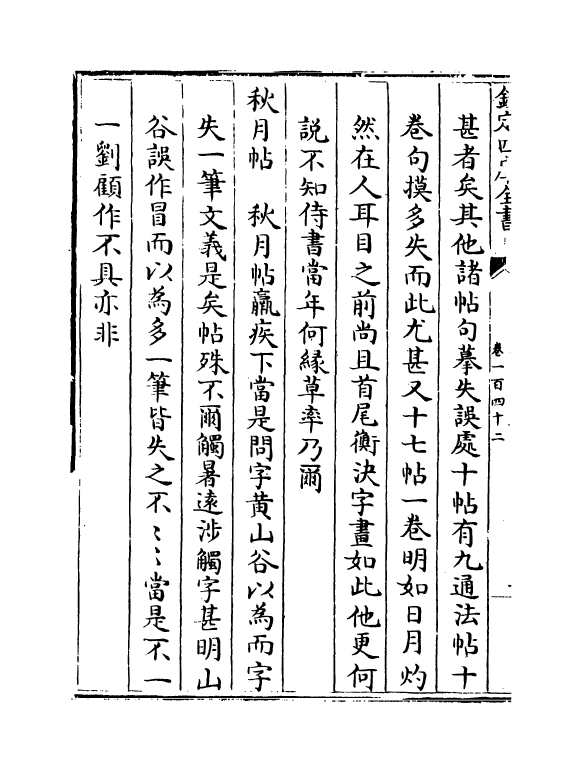 欽定四庫全書
卷一百四十二
甚者矣其他諸帖句摹失誤處十帖有九通法帖十
卷句摸多失而此尤甚又十七帖一卷明如日月灼
然在人耳目之前尚且首尾衡決字畫如此他更何
說不知侍書當年何緣草率乃爾
秋月帖　秋月帖羸疾下當是問字黄山谷以為而字
失一筆文義是矣帖殊不爾觸暑逺涉觸字甚明山
谷誤作冒而以為多一筆皆失之不〻〻當是不一
一劉顧作不具亦非